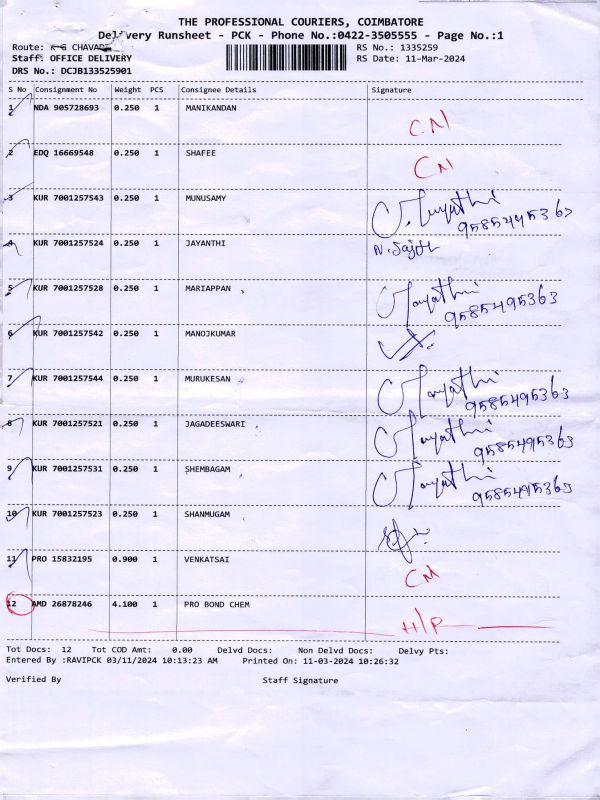 THE PROFESSIONAL COURIERS, COIMBATORE
Delivery Runsheet - PCK - Phone No.:0422-3505555 - Page No.:1
Route: K G CHAVADI RS No.: 1335259
Staff: OFFICE DELIVERY RS Date: 11-Mar-2024
DRS No.: DCJB133525901
S No Consignment No Weight PCS Consignee Details Signature
1 NDA 905728693 0.250 1 MANIKANDAN CN
2 EDQ 16669548 0.250 1 SHAFEE CN
3 KUR 7001257543 0.250 1 MUNUSAMY
9585495363
4 KUR 7001257524 0.250 1 JAYANTHI N. Sajith
5 KUR 7001257528 0.250 1 MARIAPPAN
9585495363
6 KUR 7001257542 0.250 1 MANOJKUMAR
7 KUR 7001257544 0.250 1 MURUKESAN
9585495363
8 KUR 7001257521 0.250 1 JAGADEESWARI
9585495363
9 KUR 7001257531 0.250 1 SHEMBAGAM
9585495363
10 KUR 7001257523 0.250 1 SHANMUGAM
11 PRO 15832195 0.900 1 VENKATSAI CM
12 AMD 26878246 4.100 1 PRO BOND CHEM H/P
Tot Docs: 12 Tot COD Amt: 0.00 Delvd Docs: Non Delvd Docs: Delvy Pts:
Entered By :RAVIPCK 03/11/2024 10:13:23 AM Printed On: 11-03-2024 10:26:32
Verified By Staff Signature